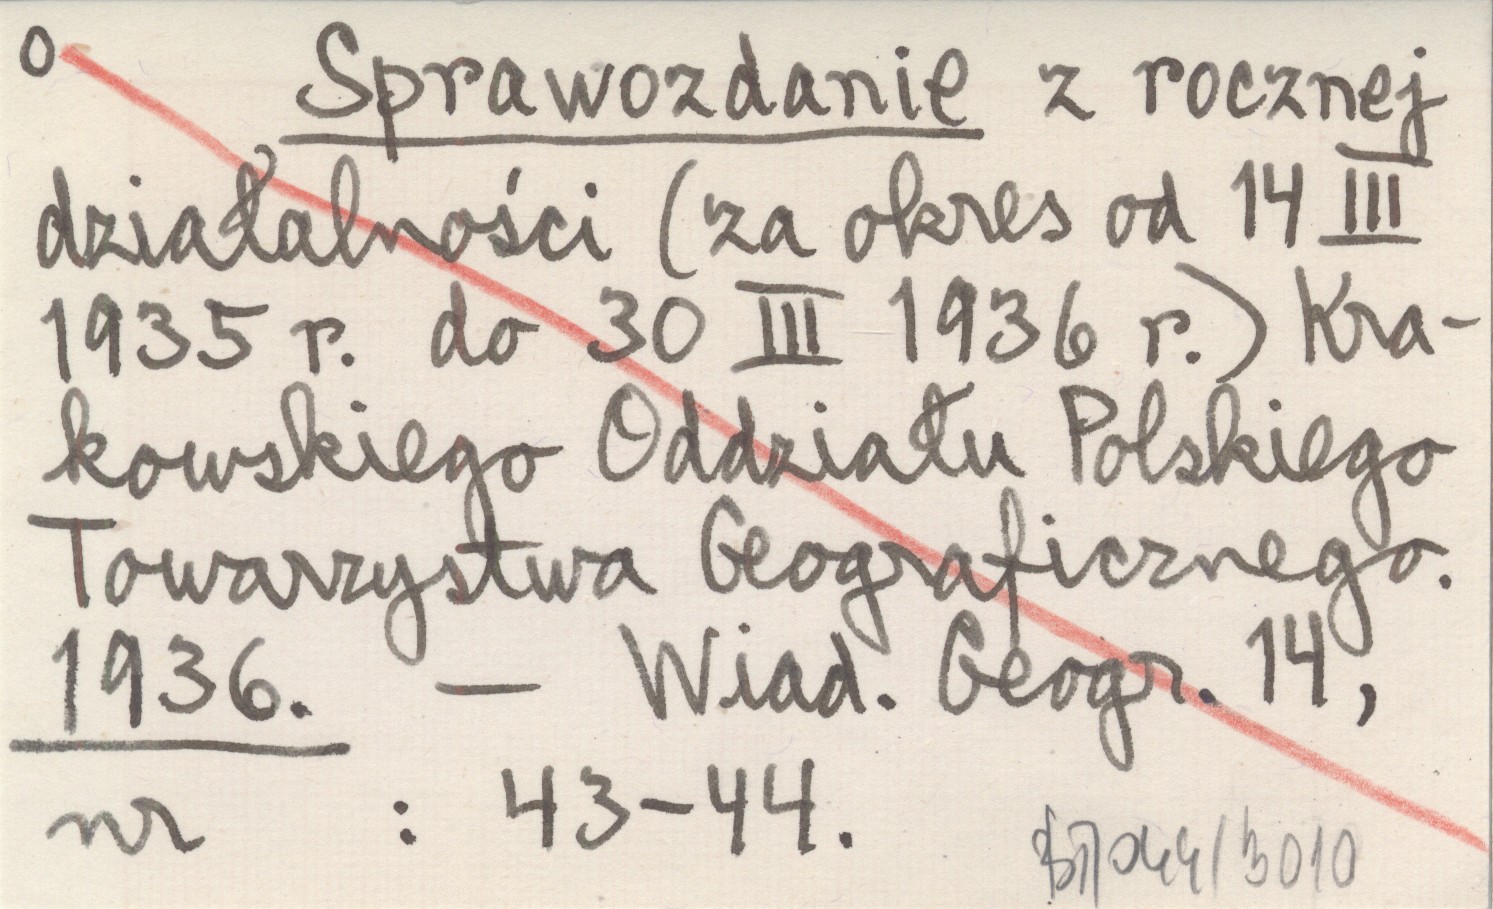 o Sprawozdanie z rocznej
działalności (za okres od 14 III
1935 r. do 30 III 1936 r.) Kra-
kowskiego Oddziału Polskiego
Towarzystwa Geograficznego.
1936. — Wiad. Geogr. 14,
nr : 43-44.